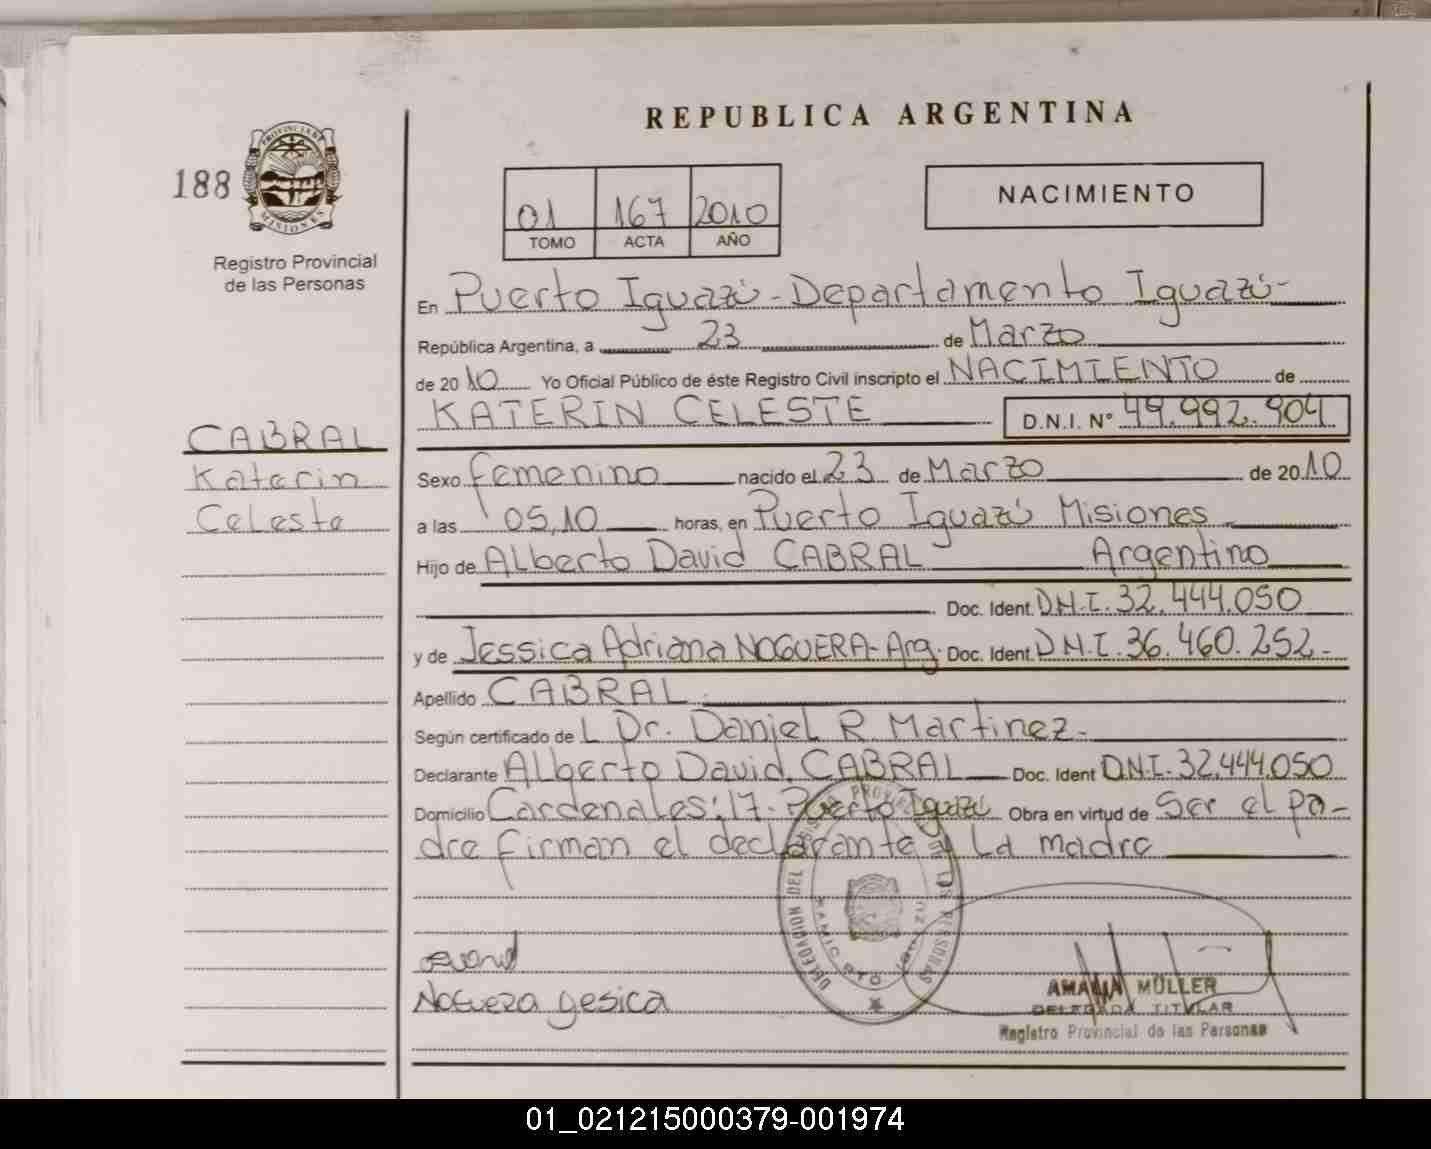 REPUBLICA ARGENTINA
188
PROVINCIA DE
MISIONES
Registro Provincial
de las Personas
01 167 2010
TOMO ACTA AÑO
NACIMIENTO
En Puerto Iguazú - Departamento Iguazú -
República Argentina, a 23 de Marzo
de 2010 Yo Oficial Público de éste Registro Civil inscripto el NACIMIENTO de
KATERIN CELESTE D.N.I. Nº 49.992.904
CABRAL
Katerin
Celeste
Sexo femenino nacido el 23 de Marzo de 2010
a las 05,10 horas, en Puerto Iguazú Misiones
Hijo de Alberto David CABRAL Argentino
Doc. Ident. D.N.I. 32.444.050
y de Jessica Adriana NOGUERA - Arg. Doc. Ident. D.N.I. 36.460.252 -
Apellido CABRAL
Según certificado de L Dr. Daniel R. Martinez -
Declarante Alberto David CABRAL Doc. Ident D.N.I. 32.444.050
Domicilio Cardenales: 17 - Puerto Iguazú Obra en virtud de Ser el pa-
dre firman el declarante y La madre
DELEGACION DEL REGISTRO PROVINCIAL DE LAS PERSONAS
Noguera yesica
AMALIA MÜLLER
DELEGADA TITULAR
Registro Provincial de las Personas
01_021215000379-001974